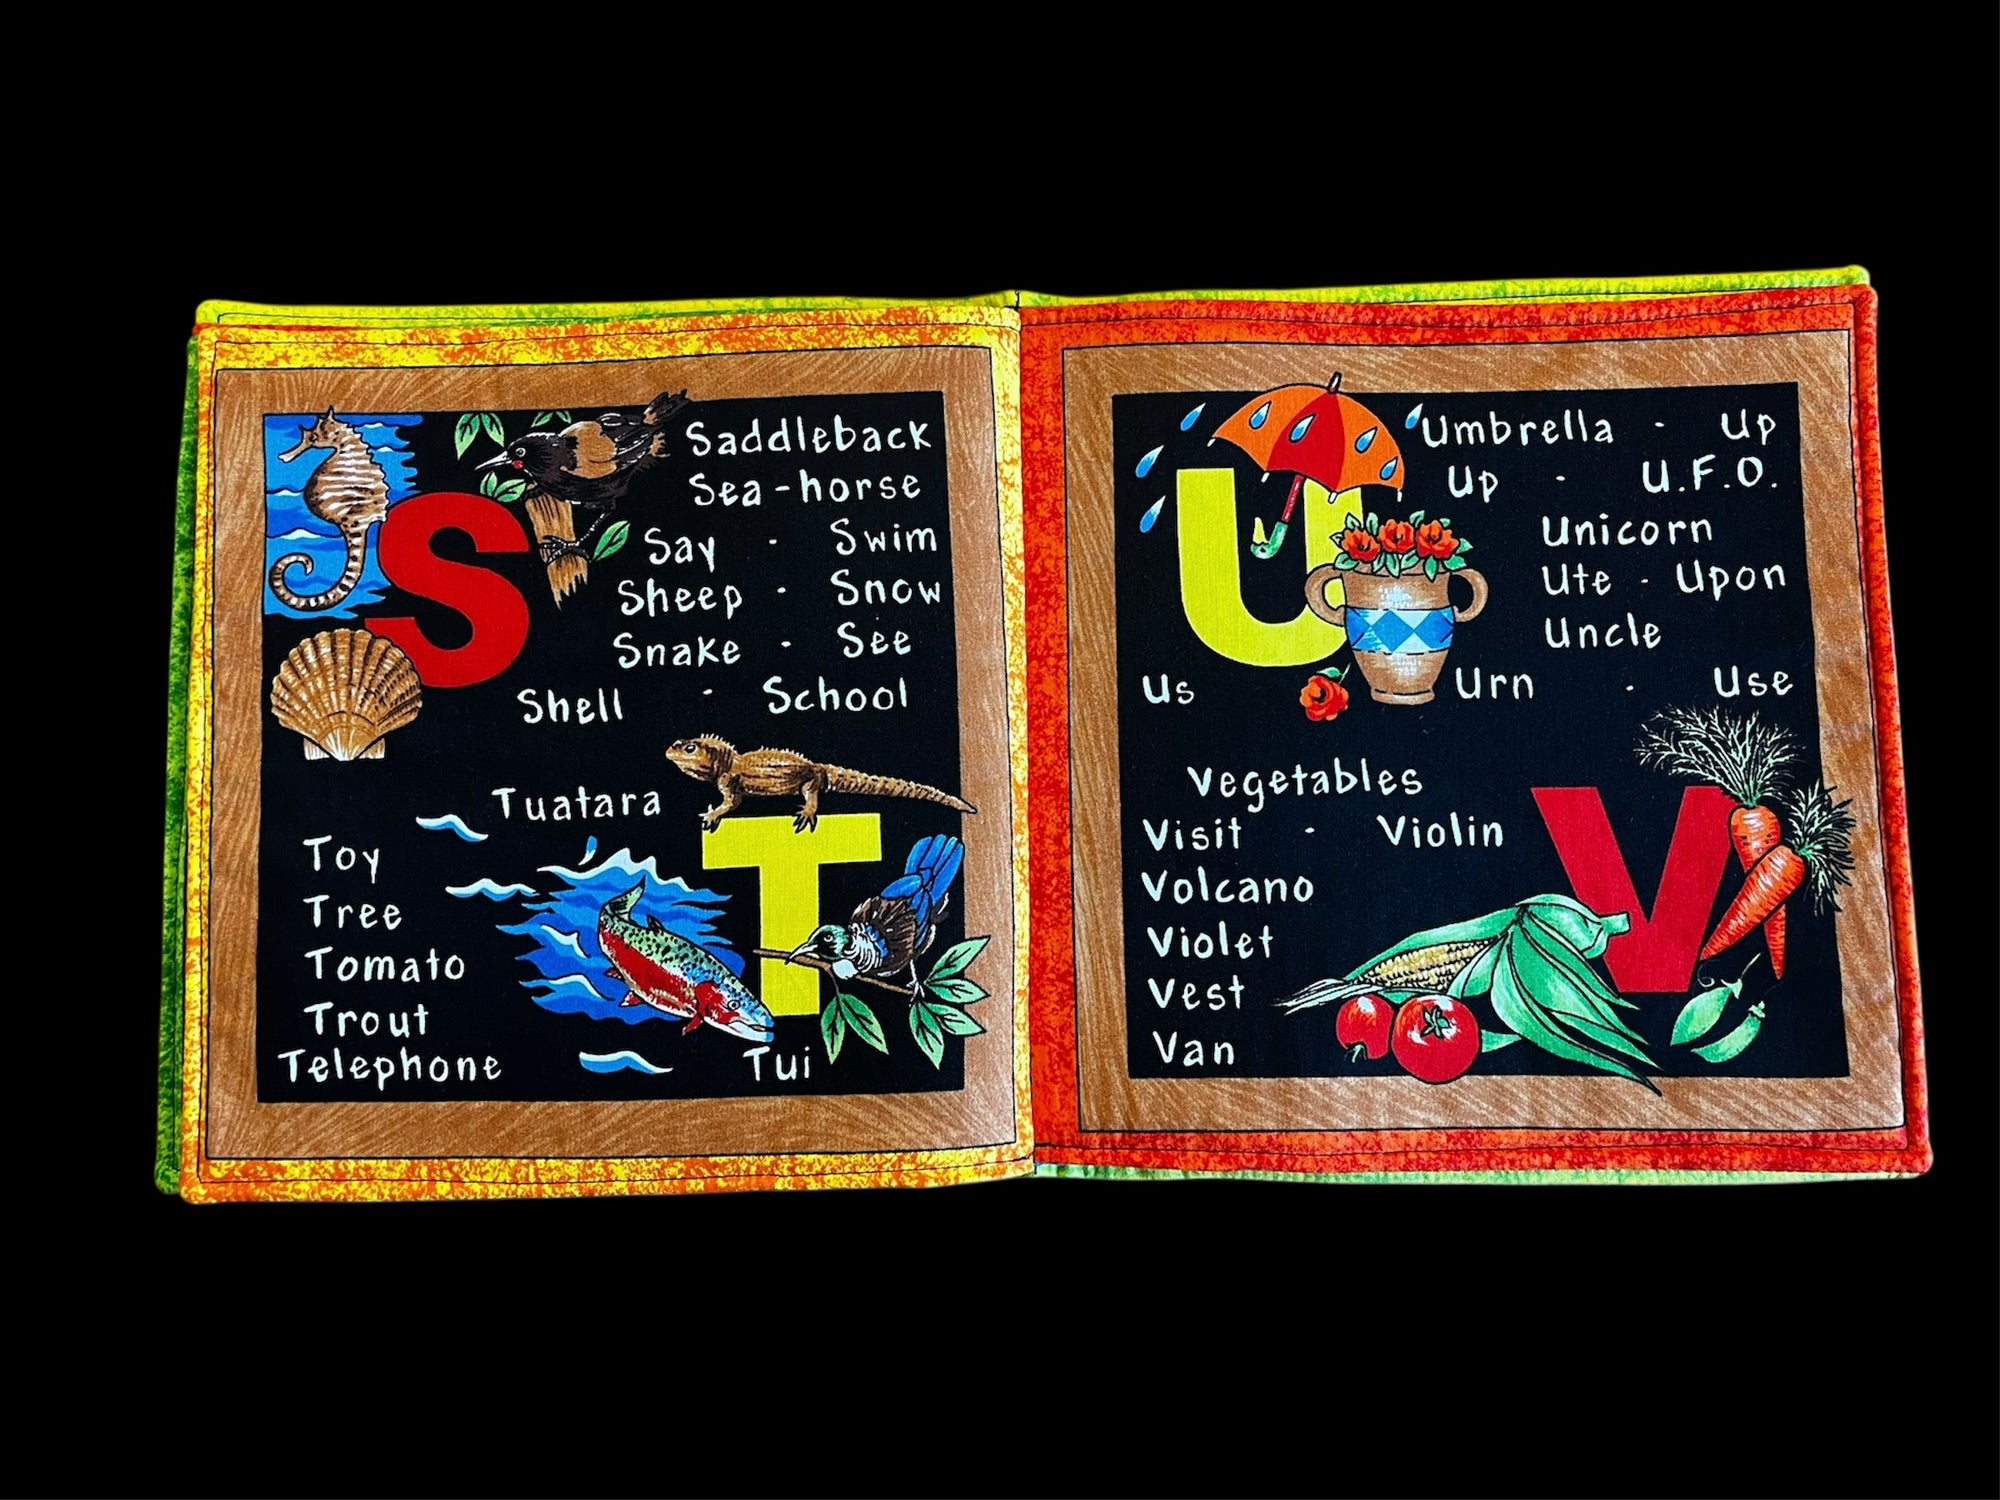 S
Saddleback
Sea-horse
Say · Swim
Sheep · Snow
Snake · See
Shell · School
Tuatara
T
Toy
Tree
Tomato
Trout
Telephone
Tui
U
Umbrella · Up
Up · U.F.O.
Unicorn
Ute · Upon
Uncle
Us
Urn · Use
Vegetables
V
Visit · Violin
Volcano
Violet
Vest
Van